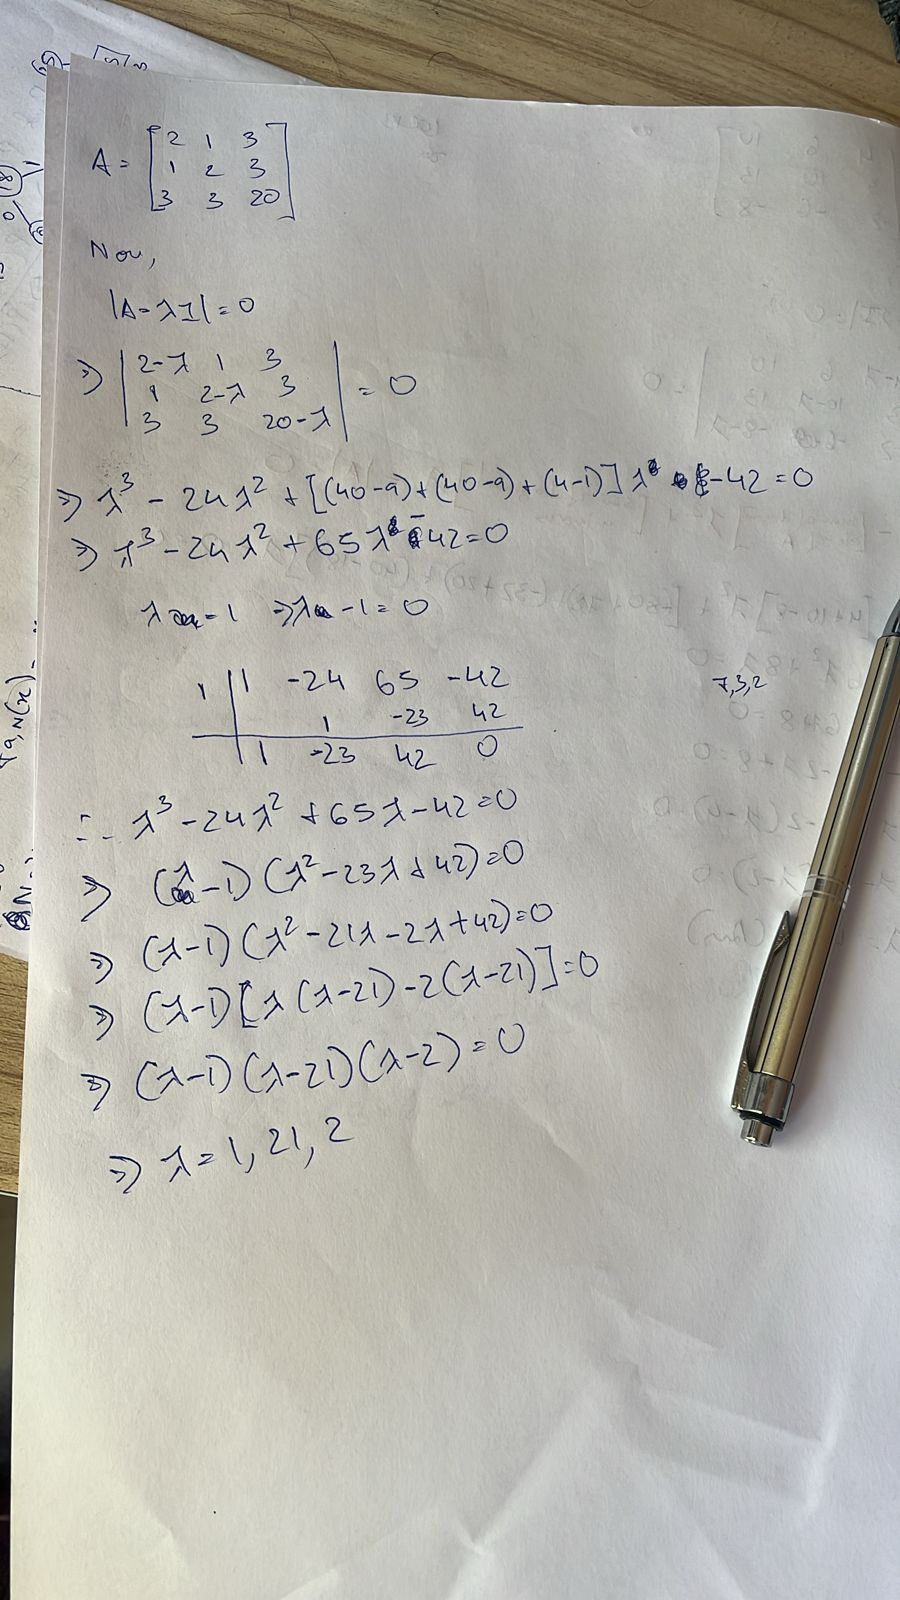 A = [2 1 3
1 2 3
3 3 20]
Now,
|A-λI| = 0
⇒ |2-λ 1 3
1 2-λ 3
3 3 20-λ| = 0
⇒ λ³ - 24λ² + [(40-9)+(40-9)+(4-1)]λ -42=0
⇒ λ³ - 24λ² + 65λ - 42=0
λ = 1 ⇒ λ -1=0
1 | 1 -24 65 -42
1 -23 42
1 -23 42 0
7,3,2
∴ λ³ - 24λ² + 65λ - 42=0
⇒ (λ-1) (λ² - 23λ + 42)=0
⇒ (λ-1) (λ² - 21λ - 2λ + 42)=0
⇒ (λ-1) [λ (λ-21) - 2(λ-21)]=0
⇒ (λ-1) (λ-21) (λ-2) = 0
⇒ λ = 1, 21, 2